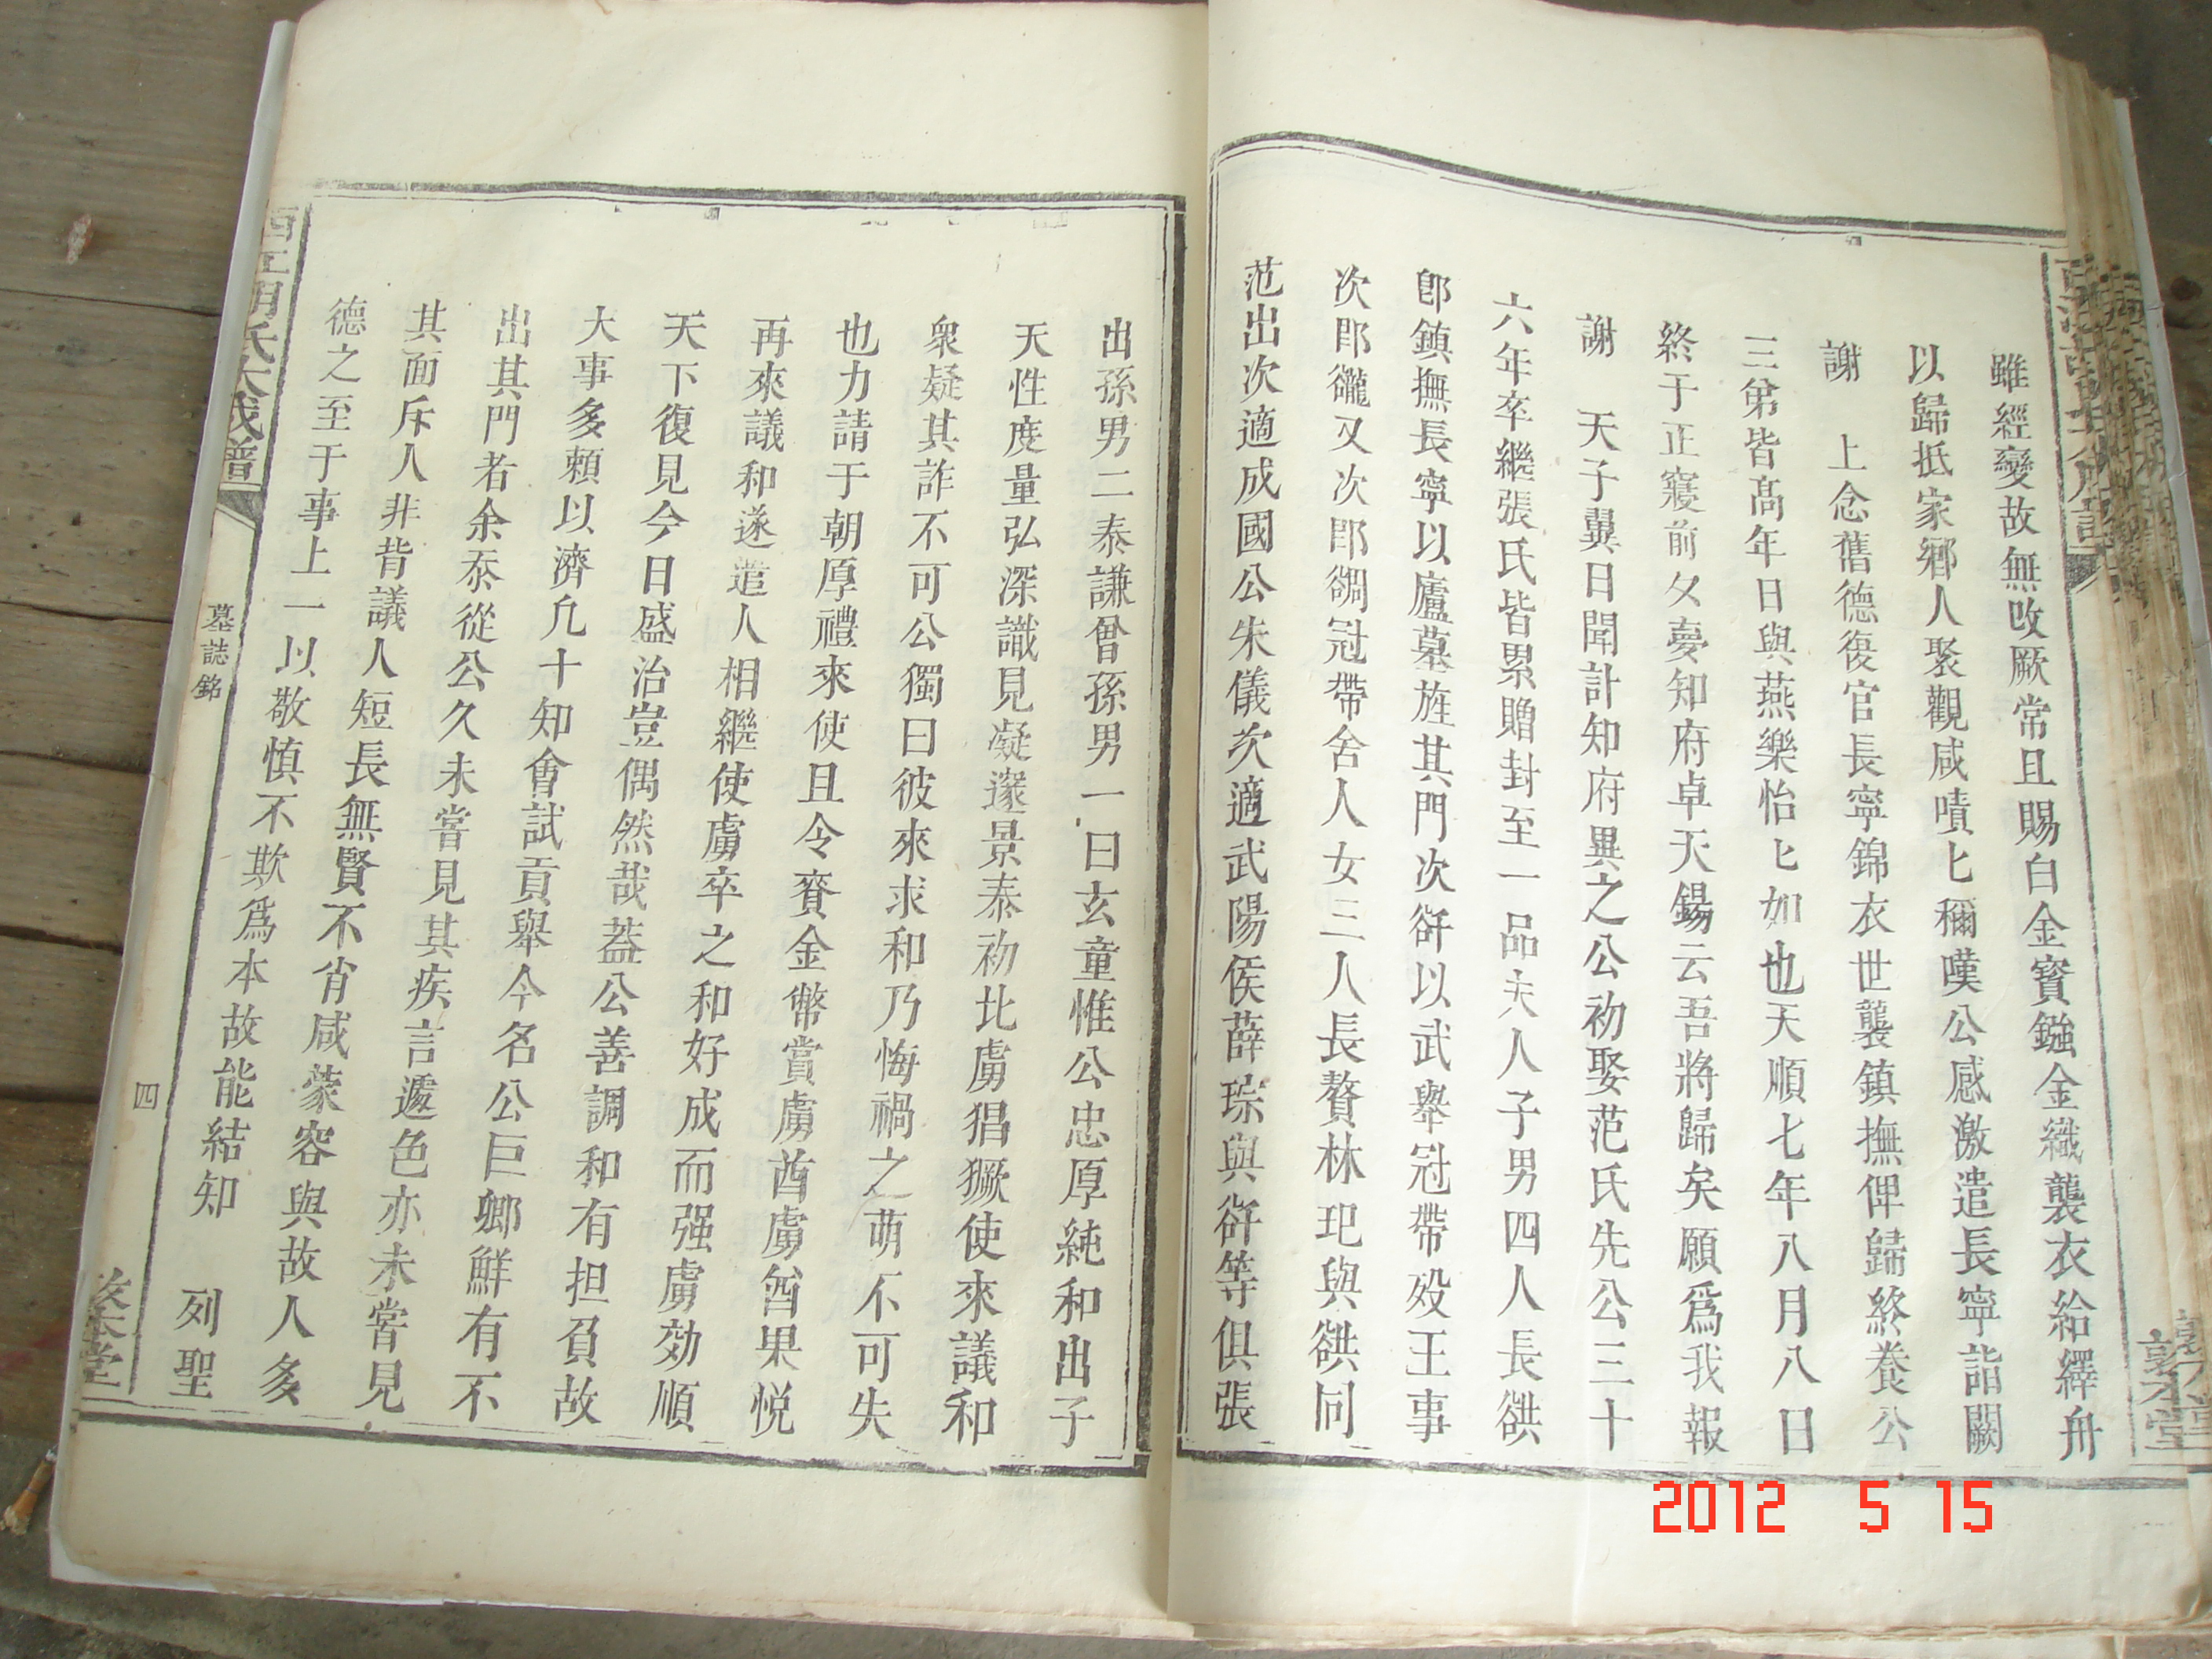 雖經變故無改厥常且賜白金寶鏹金織襲衣給繹舟
以歸抵家鄕人聚觀咸嘖匕稱嘆公感激遣長寧詣闕
謝 上念舊德復官長寧錦衣世襲鎮撫俾歸終養公
三弟皆髙年日與燕樂怡匕如也天順七年八月八日
終于正寢前夂夢知府卓天錫云吾將歸矣願爲我報
謝 天子翼日聞訃知府異之公初娶范氏先公三十
六年卒繼張氏皆累贈封至一品夫人子男四人長
卽鎮撫長寧以廬墓旌其門次 以武舉冠帶歿王事
次卽 又次卽 冠帶舍人女三人長贅林玘與 同
范出次適成國公朱儀次適武陽侯薛琮與 等俱張
出孫男二泰謙曾孫男一曰玄童惟公忠厚純和出子
天性度量弘深識見凝邃景泰初北虜猖獗使來議和
衆疑其詐不可公獨曰彼來求和乃悔禍之萌不可失
也力請于朝厚禮來使且令賫金幣賞虜酋虜酋果悦
再來議和遂遣人相繼使虜卒之和好成而强虜効順
天下復見今日盛治豈偶然哉葢公善調和有担負故
大事多頼以濟凢十知會試貢舉今名公巨卿鮮有不
出其門者余忝從公久未嘗見其疾言遽色亦未嘗見
其面斥人非背議人短長無賢不肖咸蒙容與故人多
德之至于事上一以敬慎不欺爲本故能結知 列聖
大成譜
墓誌銘
四
敦本堂
2012 5 15